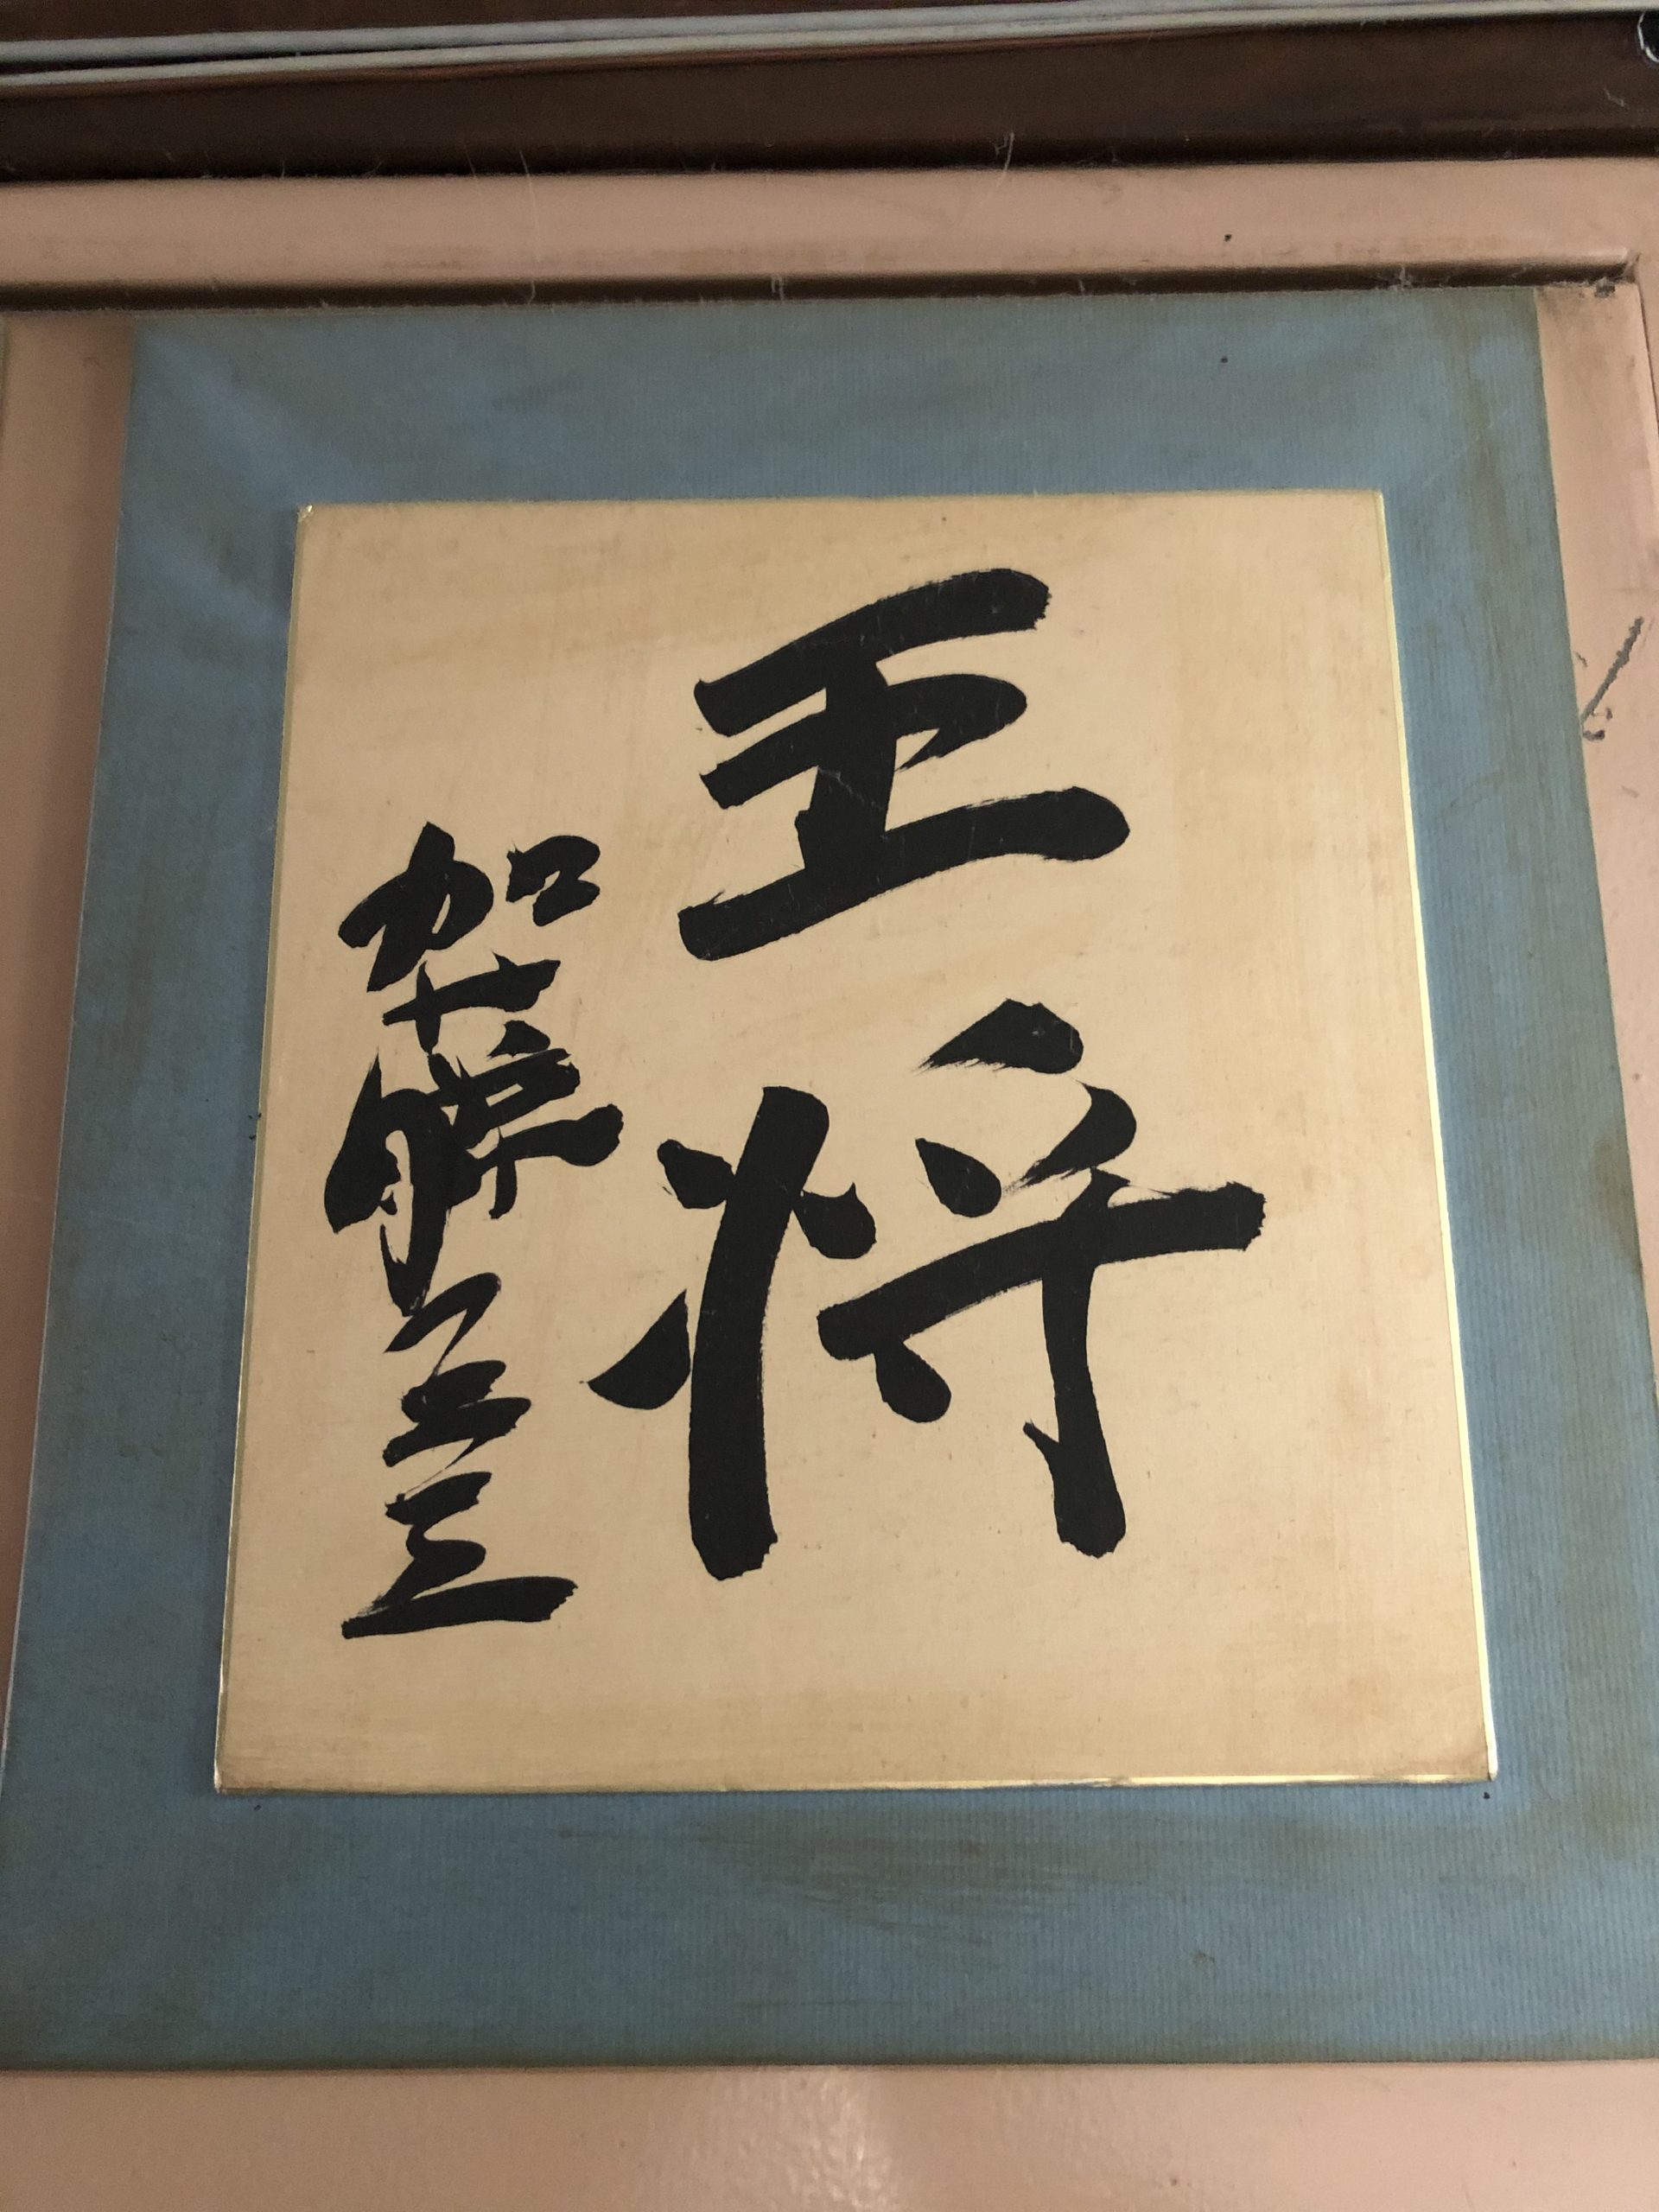 王将
加藤一二三